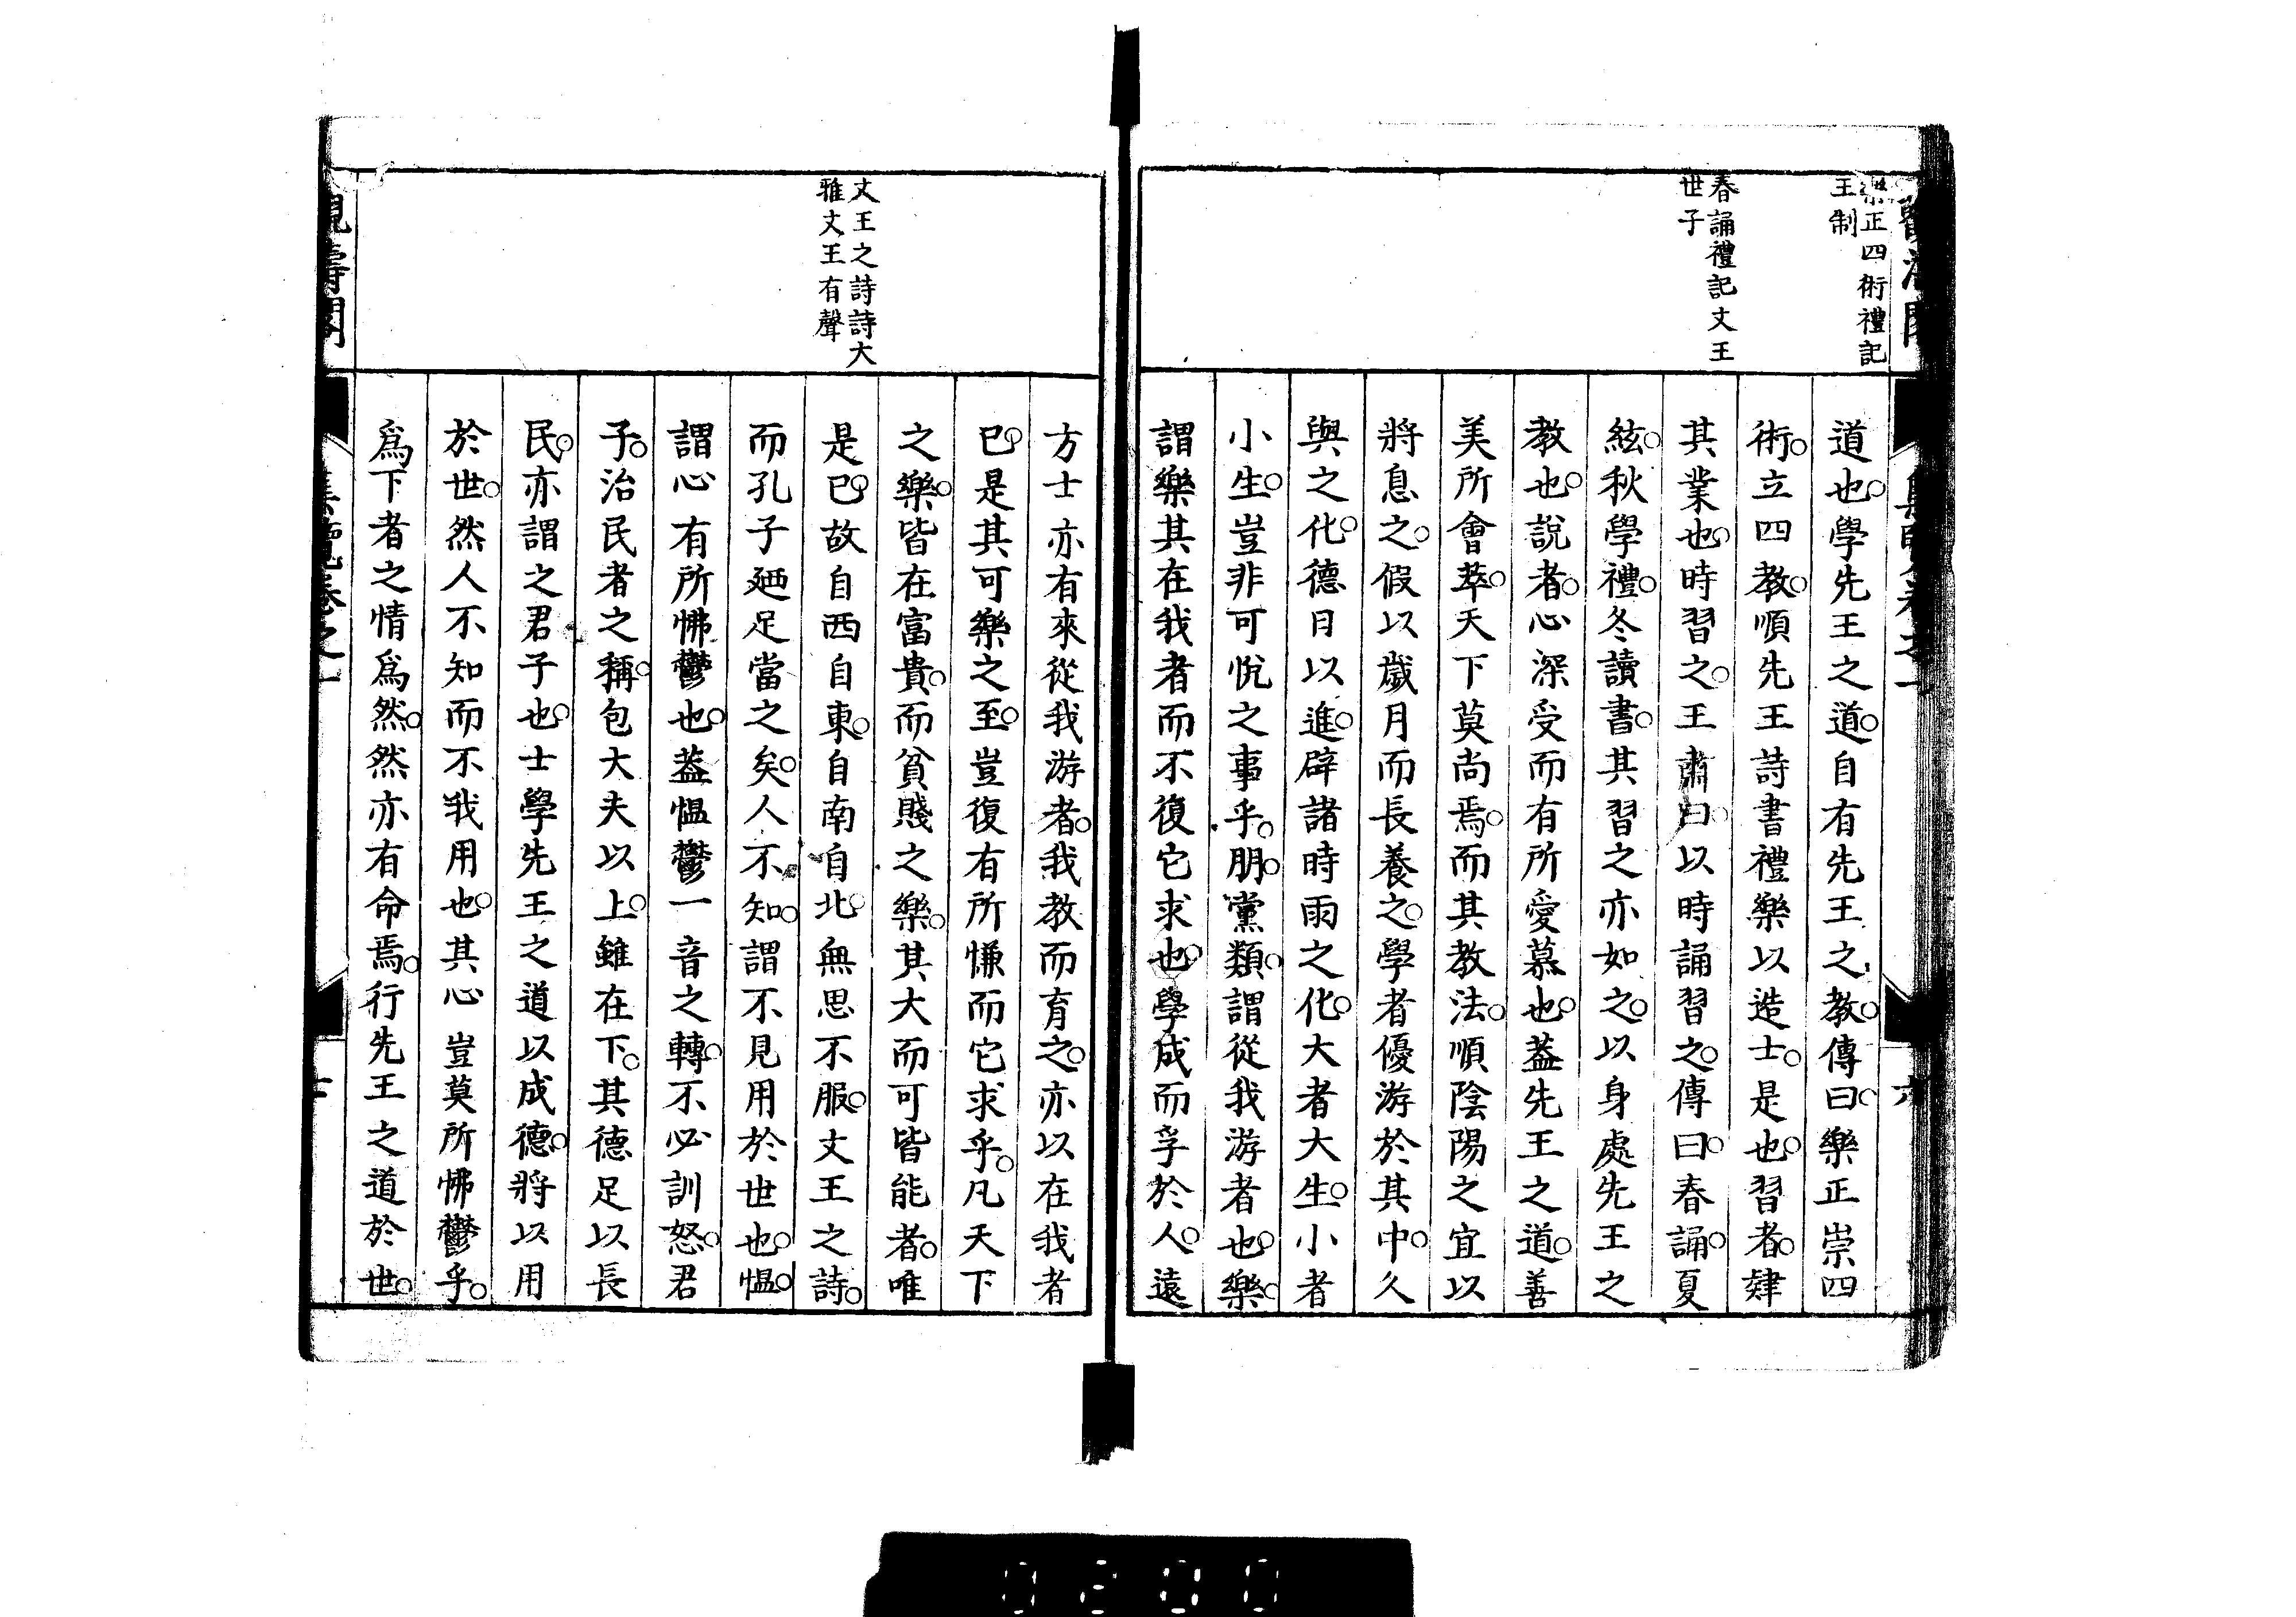 樂正四術禮記
王制
春誦禮記文王
世子
道也。學先王之道。自有先王之教。傳曰。樂正崇四
術。立四教。順先王詩書禮樂以造士。是也。習者。肄
其業也。時習之。王肅曰。以時誦習之。傳曰。春誦。夏
絃。秋學禮。冬讀書。其習之亦如之。以身處先王之
教也。說者。心深受而有所愛慕也。蓋先王之道。善
美所會萃。天下莫尚焉。而其教法。順陰陽之宜以
將息之。假以歲月而長養之。學者優游於其中。久
與之化。德日以進。辟諸時雨之化。大者大生。小者
小生。豈非可悅之事乎。朋。黨類。謂從我游者也。樂。
謂樂其在我者而不復它求也。學成而孚於人。遠
文王之詩詩大
雅文王有聲
方士亦有來從我游者。我教而育之。亦以在我者
已。是其可樂之至。豈復有所慊而它求乎。凡天下
之樂。皆在富貴。而貧賤之樂。其大而可皆能者。唯
是已。故自西自東。自南自北。無思不服。文王之詩。
而孔子廼足當之矣。人不知。謂不見用於世也。慍。
謂心有所怫鬱也。蓋慍鬱一音之轉。不必訓怒。君
子。治民者之稱。包大夫以上。雖在下。其德足以長
民。亦謂之君子也。士學先王之道以成德。將以用
於世。然人不知而不我用也。其心豈莫所怫鬱乎。
爲下者之情爲然。然亦有命焉。行先王之道於世。
集覽卷之一